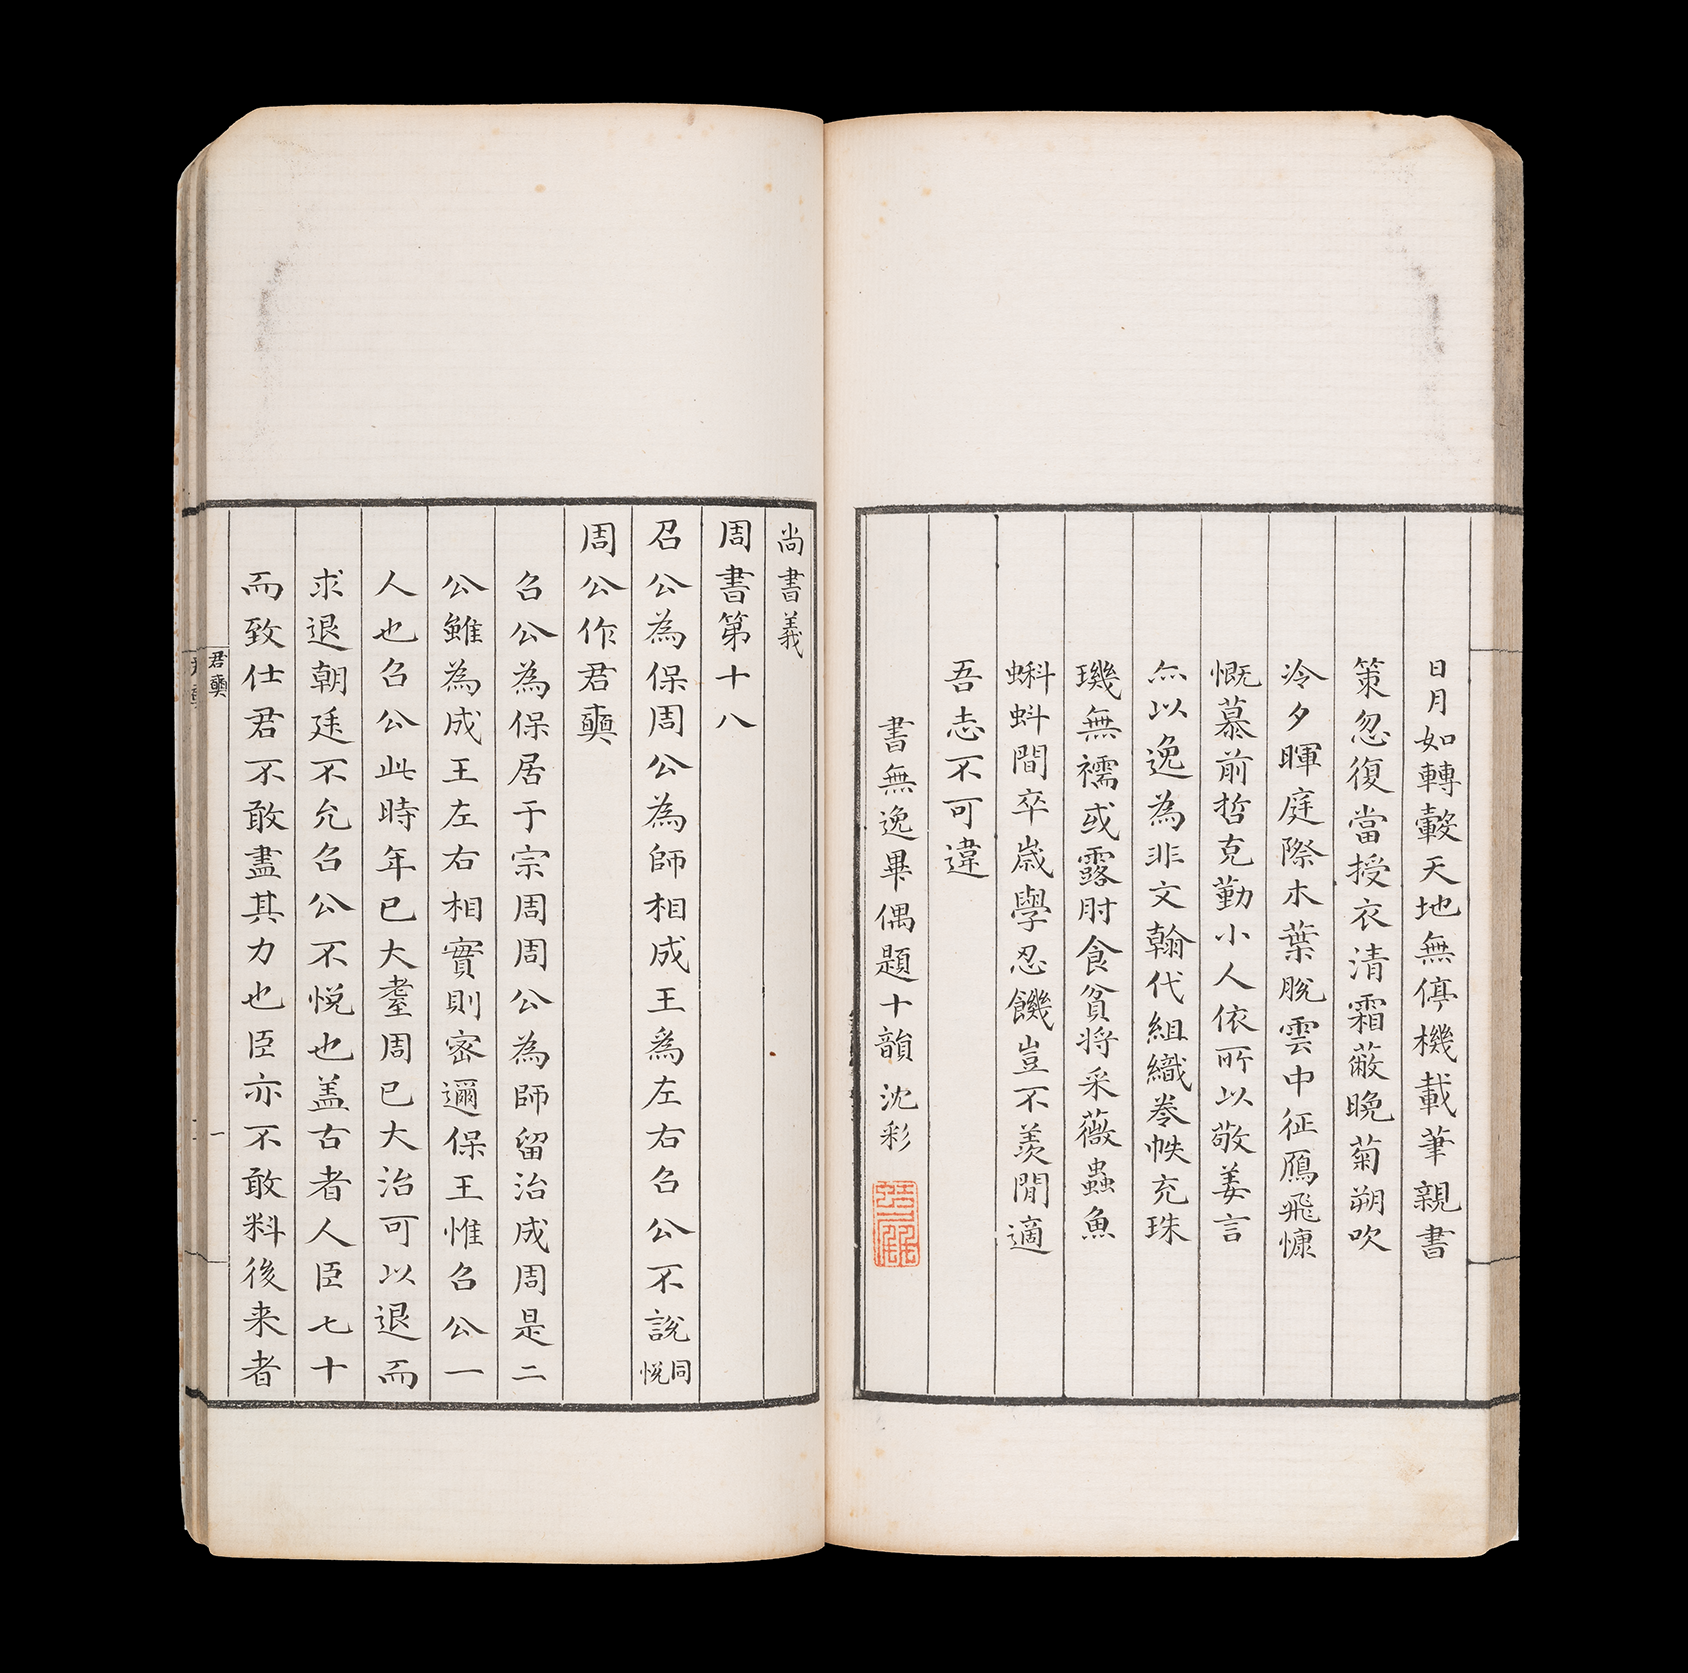 日月如轉轂天地無停機載筆親書
策忽復當授衣清霜蔽晚菊朔吹
泠夕暉庭際木葉脫雲中征鴈飛慷
慨慕前哲克勤小人依所以敬姜言
亦以逸為非文翰代組織卷帙充珠
璣無襦或露肘食貧將采薇蟲魚
蝌蚪間卒歲學忍饑豈不羨閒適
吾志不可違
書無逸畢偶題十韻 沈彩
尚書義
周書第十八
召公為保周公為師相成王爲左右召公不說同悅
周公作君奭
召公為保居于宗周周公為師留治成周是二
公雖為成王左右相實則密邇保王惟召公一
人也召公此時年已大耋周已大治可以退而
求退朝廷不允召公不悅也盖古者人臣七十
而致仕君不敢盡其力也臣亦不敢料後来者
君奭
一